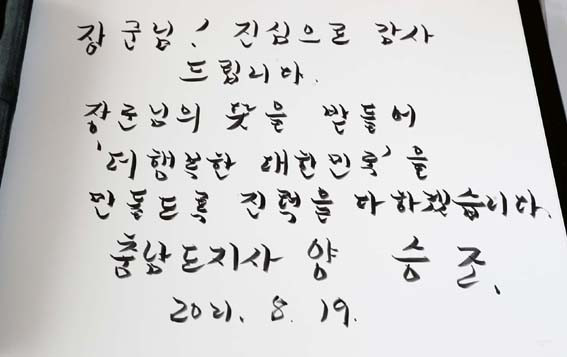 장군님! 진심으로 감사
드립니다.
장군님의 뜻을 받들어
'더 행복한 대한민국'을
만들도록 진력을 다하겠습니다.
충남도지사 양 승 조.
2021. 8. 19.